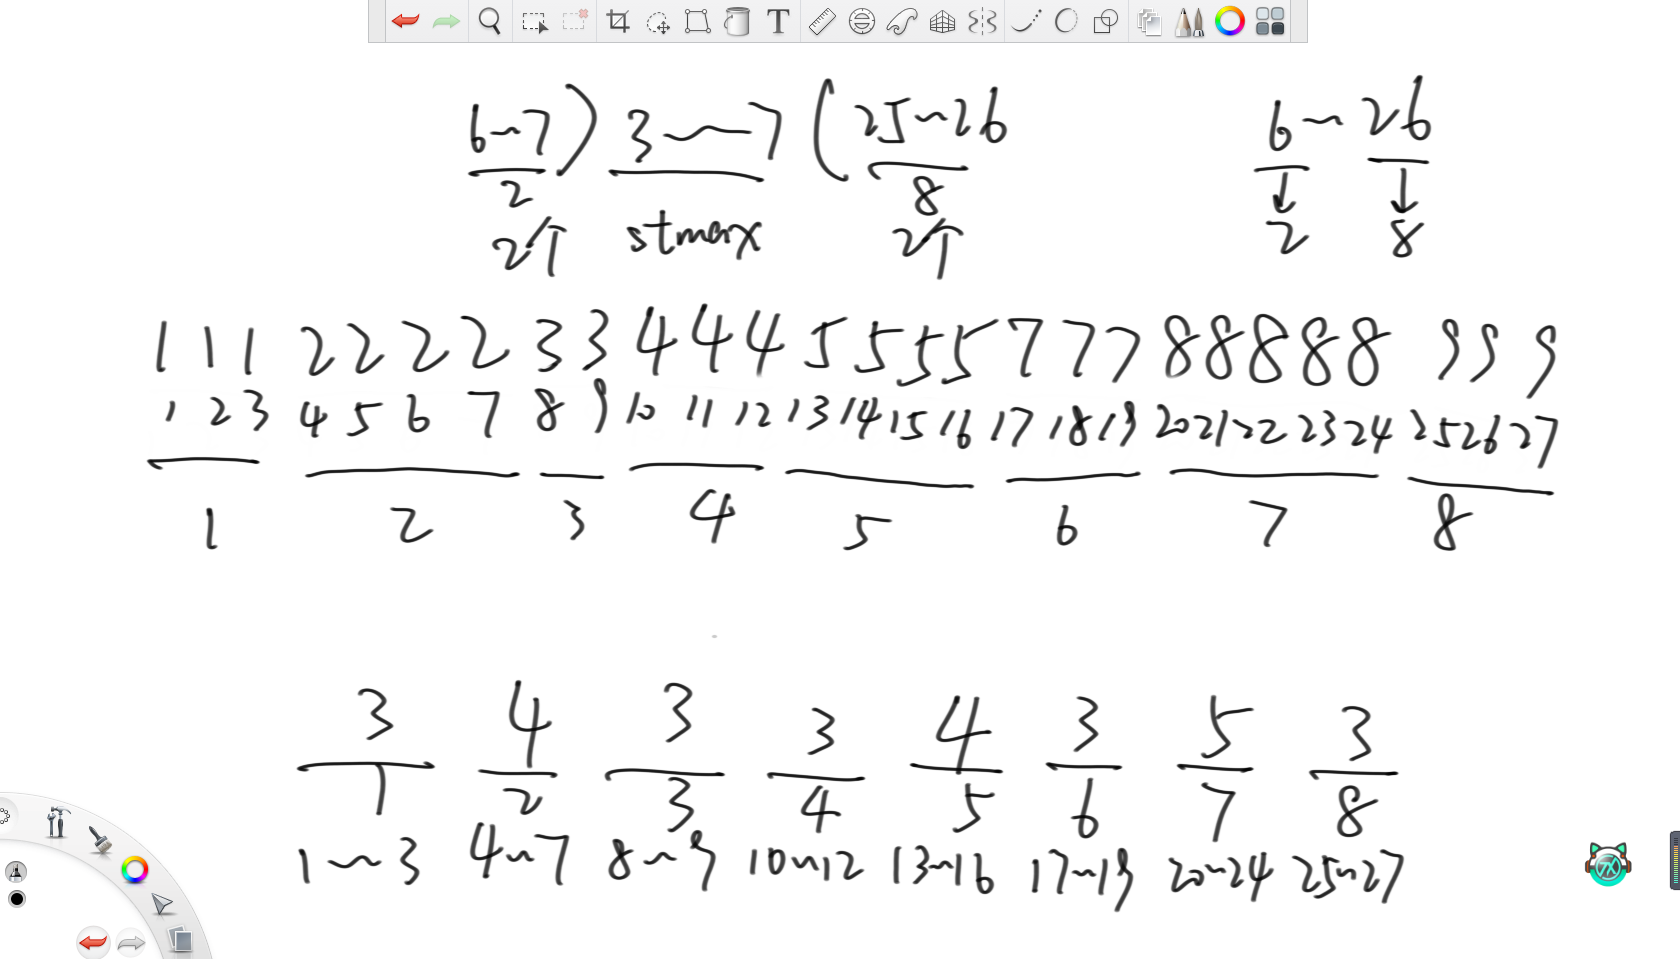 6~7) 3~7 (25~26 6~26
2 8 2 8
2个 stmax 2个
1 1 1 2 2 2 2 3 3 4 4 4 5 5 5 5 7 7 7 8 8 8 8 8 9 9 9
1 2 3 4 5 6 7 8 9 10 11 12 13 14 15 16 17 18 19 20 21 22 23 24 25 26 27
1 2 3 4 5 6 7 8
3 4 3 3 4 3 5 3
1 2 3 4 5 6 7 8
1~3 4~7 8~9 10~12 13~16 17~19 20~24 25~27